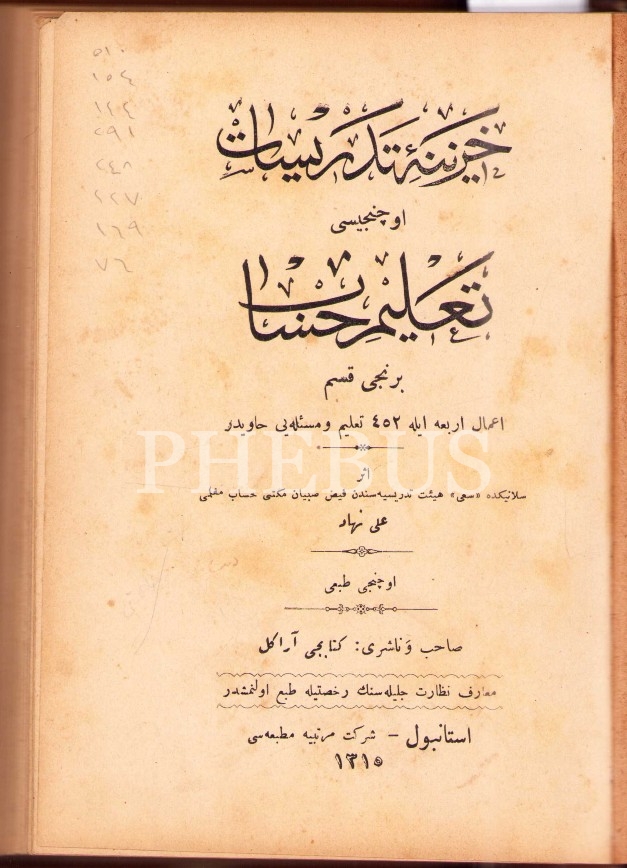 ٥١٠
١٥٤
١٤٤
٢٩١
٢٤٨
٢٢٧
١٦٩
٧٦
خزينهٔ تدريسات
اوچنجيسی
تعليم حساب
برنجی قسم
اعمال اربعه ايله ٤٥٢ تعليم و مسئله‌يی حاويدر
PHEBUS
اثر
سلانيكده «سعی» هيئت تدريسيه‌سندن فيض صبيان مكتبی حساب معلمی
علی نهاد
اوچنجی طبعی
صاحب و ناشری: كتابجی آراكل
معارف نظارت جليله‌سنك رخصتيله طبع اولنمشدر
استانبول – شركت مرتبيه مطبعه‌سی
١٣١٥